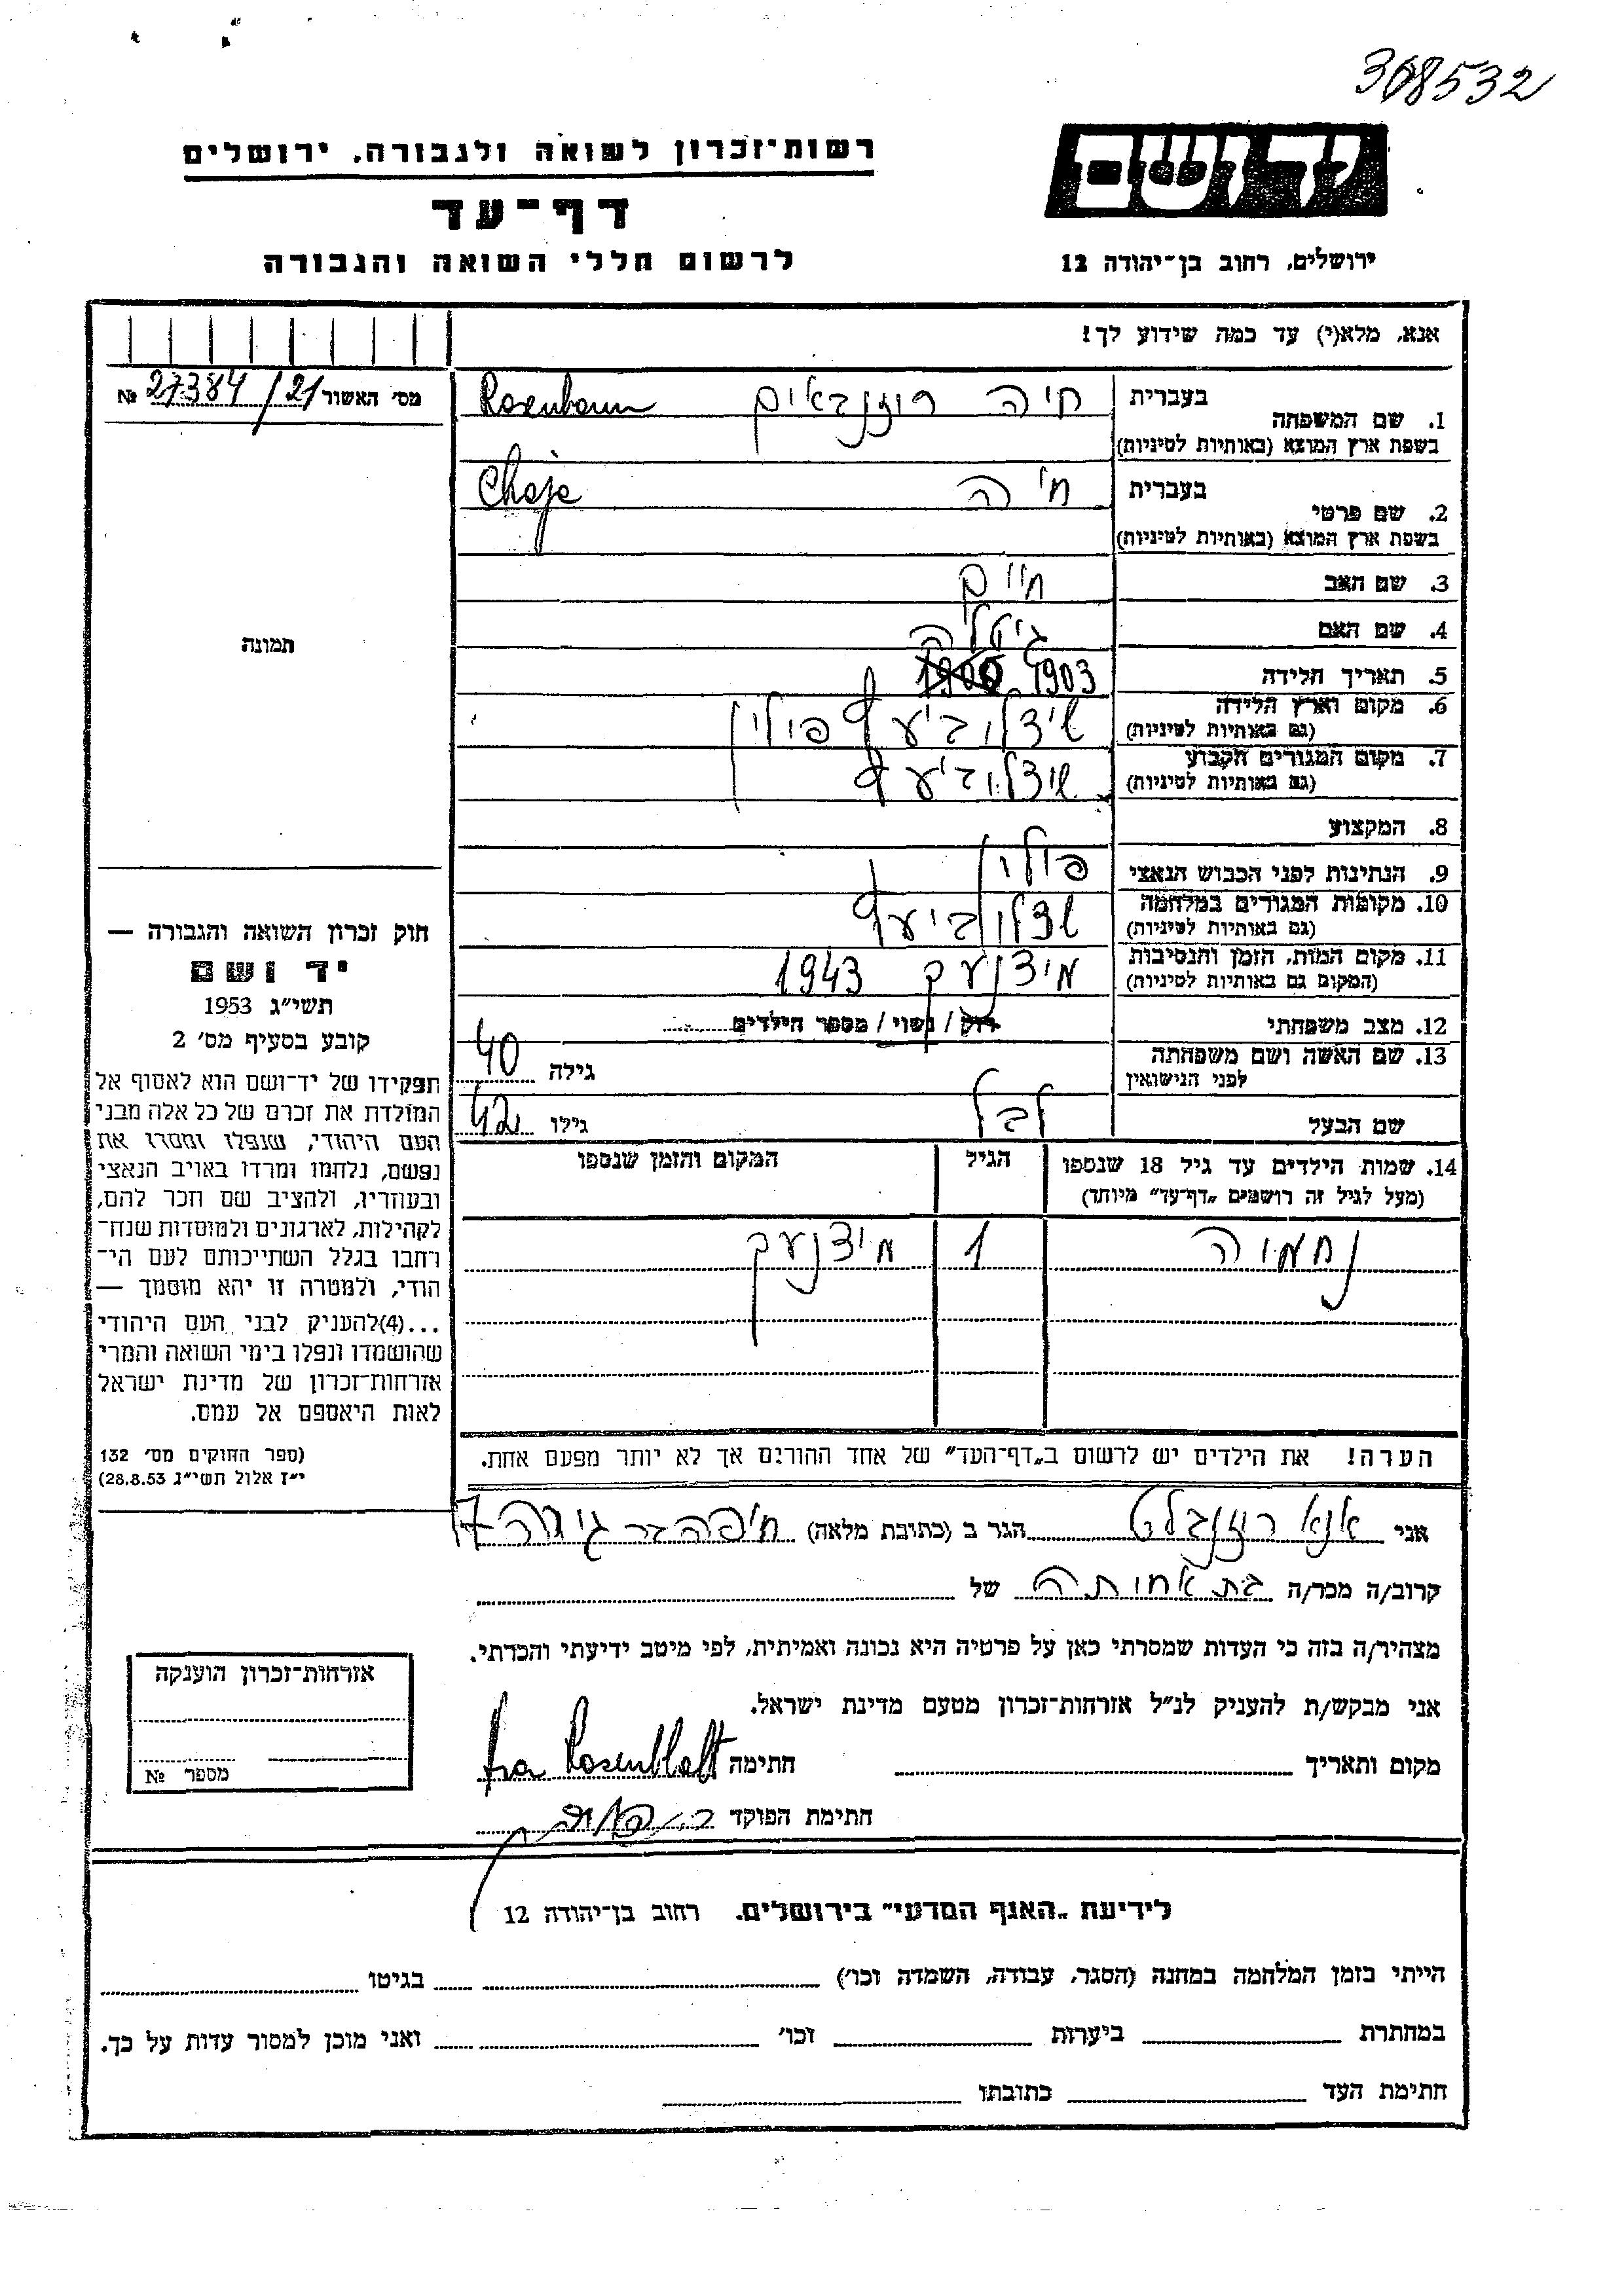 368532
רשות־זכרון לשואה ולגבורה, ירושלים
יד ושם
דף־עד
לרשום חללי השואה והגבורה
ירושלים, רחוב בן־יהודה 12
אנא, מלא(י) עד כמה שידוע לך!
מס׳ האשור 27384/21 №
בעברית חיה רוזנבאום Rosenbaum
1. שם המשפחה
בשפת ארץ המוצא (באותיות לטיניות)
בעברית חיה Chaje
2. שם פרטי
בשפת ארץ המוצא (באותיות לטיניות)
3. שם האב חיים
4. שם האם גיטלה
5. תאריך הלידה 1903 1900
6. מקום וארץ הלידה שידלוביעץ פולין
(גם באותיות לטיניות)
7. מקום המגורים הקבוע שידלוביעץ
(גם באותיות לטיניות)
8. המקצוע
9. הנתינות לפני הכבוש הנאצי פולין
10. מקומות המגורים במלחמה שדלוביעץ
(גם באותיות לטיניות)
11. מקום המות, הזמן והנסיבות 1943
(המקום גם באותיות לטיניות)
12. מצב משפחתי רוק / נשוי / מספר הילדים
13. שם האשה ושם משפחתה
לפני הנישואין
גילה 40
שם הבעל לבל גילו 42
14. שמות הילדים עד גיל 18 שנספו הגיל המקום והזמן שנספו
(מעל לגיל זה רושמים „דף־עד״ מיוחד)
נחמיה 1
הערה! את הילדים יש לרשום ב„דף־העד״ של אחד ההורים אך לא יותר מפעם אחת.
תמונה
חוק זכרון השואה והגבורה —
יד ושם
תשי״ג 1953
קובע בסעיף מס׳ 2
תפקידו של יד־ושם הוא לאסוף אל
המולדת את זכרם של כל אלה מבני
העם היהודי, שנפלו ומסרו את
נפשם, נלחמו ומרדו באויב הנאצי
ובעוזריו, ולהציב שם וזכר להם,
לקהילות, לארגונים ולמוסדות שנח־
רחבו בגלל השתייכותם לעם הי־
הודי, ולמטרה זו יהא מוסמך —
...(4)להעניק לבני העם היהודי
שהושמדו ונפלו בימי השואה והמרי
אזרחות־זכרון של מדינת ישראל
לאות היאספם אל עמם.
(ספר החוקים מס׳ 132
י״ז אלול תשי״ג 28.8.53)
אני אנא רוזנבלט הגר ב (כתובת מלאה) חיפה בר גיורה 7
קרוב/ה מכר/ה בת אחותה של
מצהיר/ה בזה כי העדות שמסרתי כאן על פרטיה היא נכונה ואמיתית, לפי מיטב ידיעתי והכרתי.
אני מבקש/ת להעניק לנ״ל אזרחות־זכרון מטעם מדינת ישראל.
מקום ותאריך חתימה Rosenblatt
חתימת הפוקד
אזרחות־זכרון הוענקה
מספר №
לידיעת „האגף המדעי״ בירושלים, רחוב בן־יהודה 12
הייתי בזמן המלחמה במחנה (הסגר, עבודה, השמדה וכו׳) בגיטו
במחתרת ביערות וכו׳ ואני מוכן למסור עדות על כך.
חתימת העד כתובתו